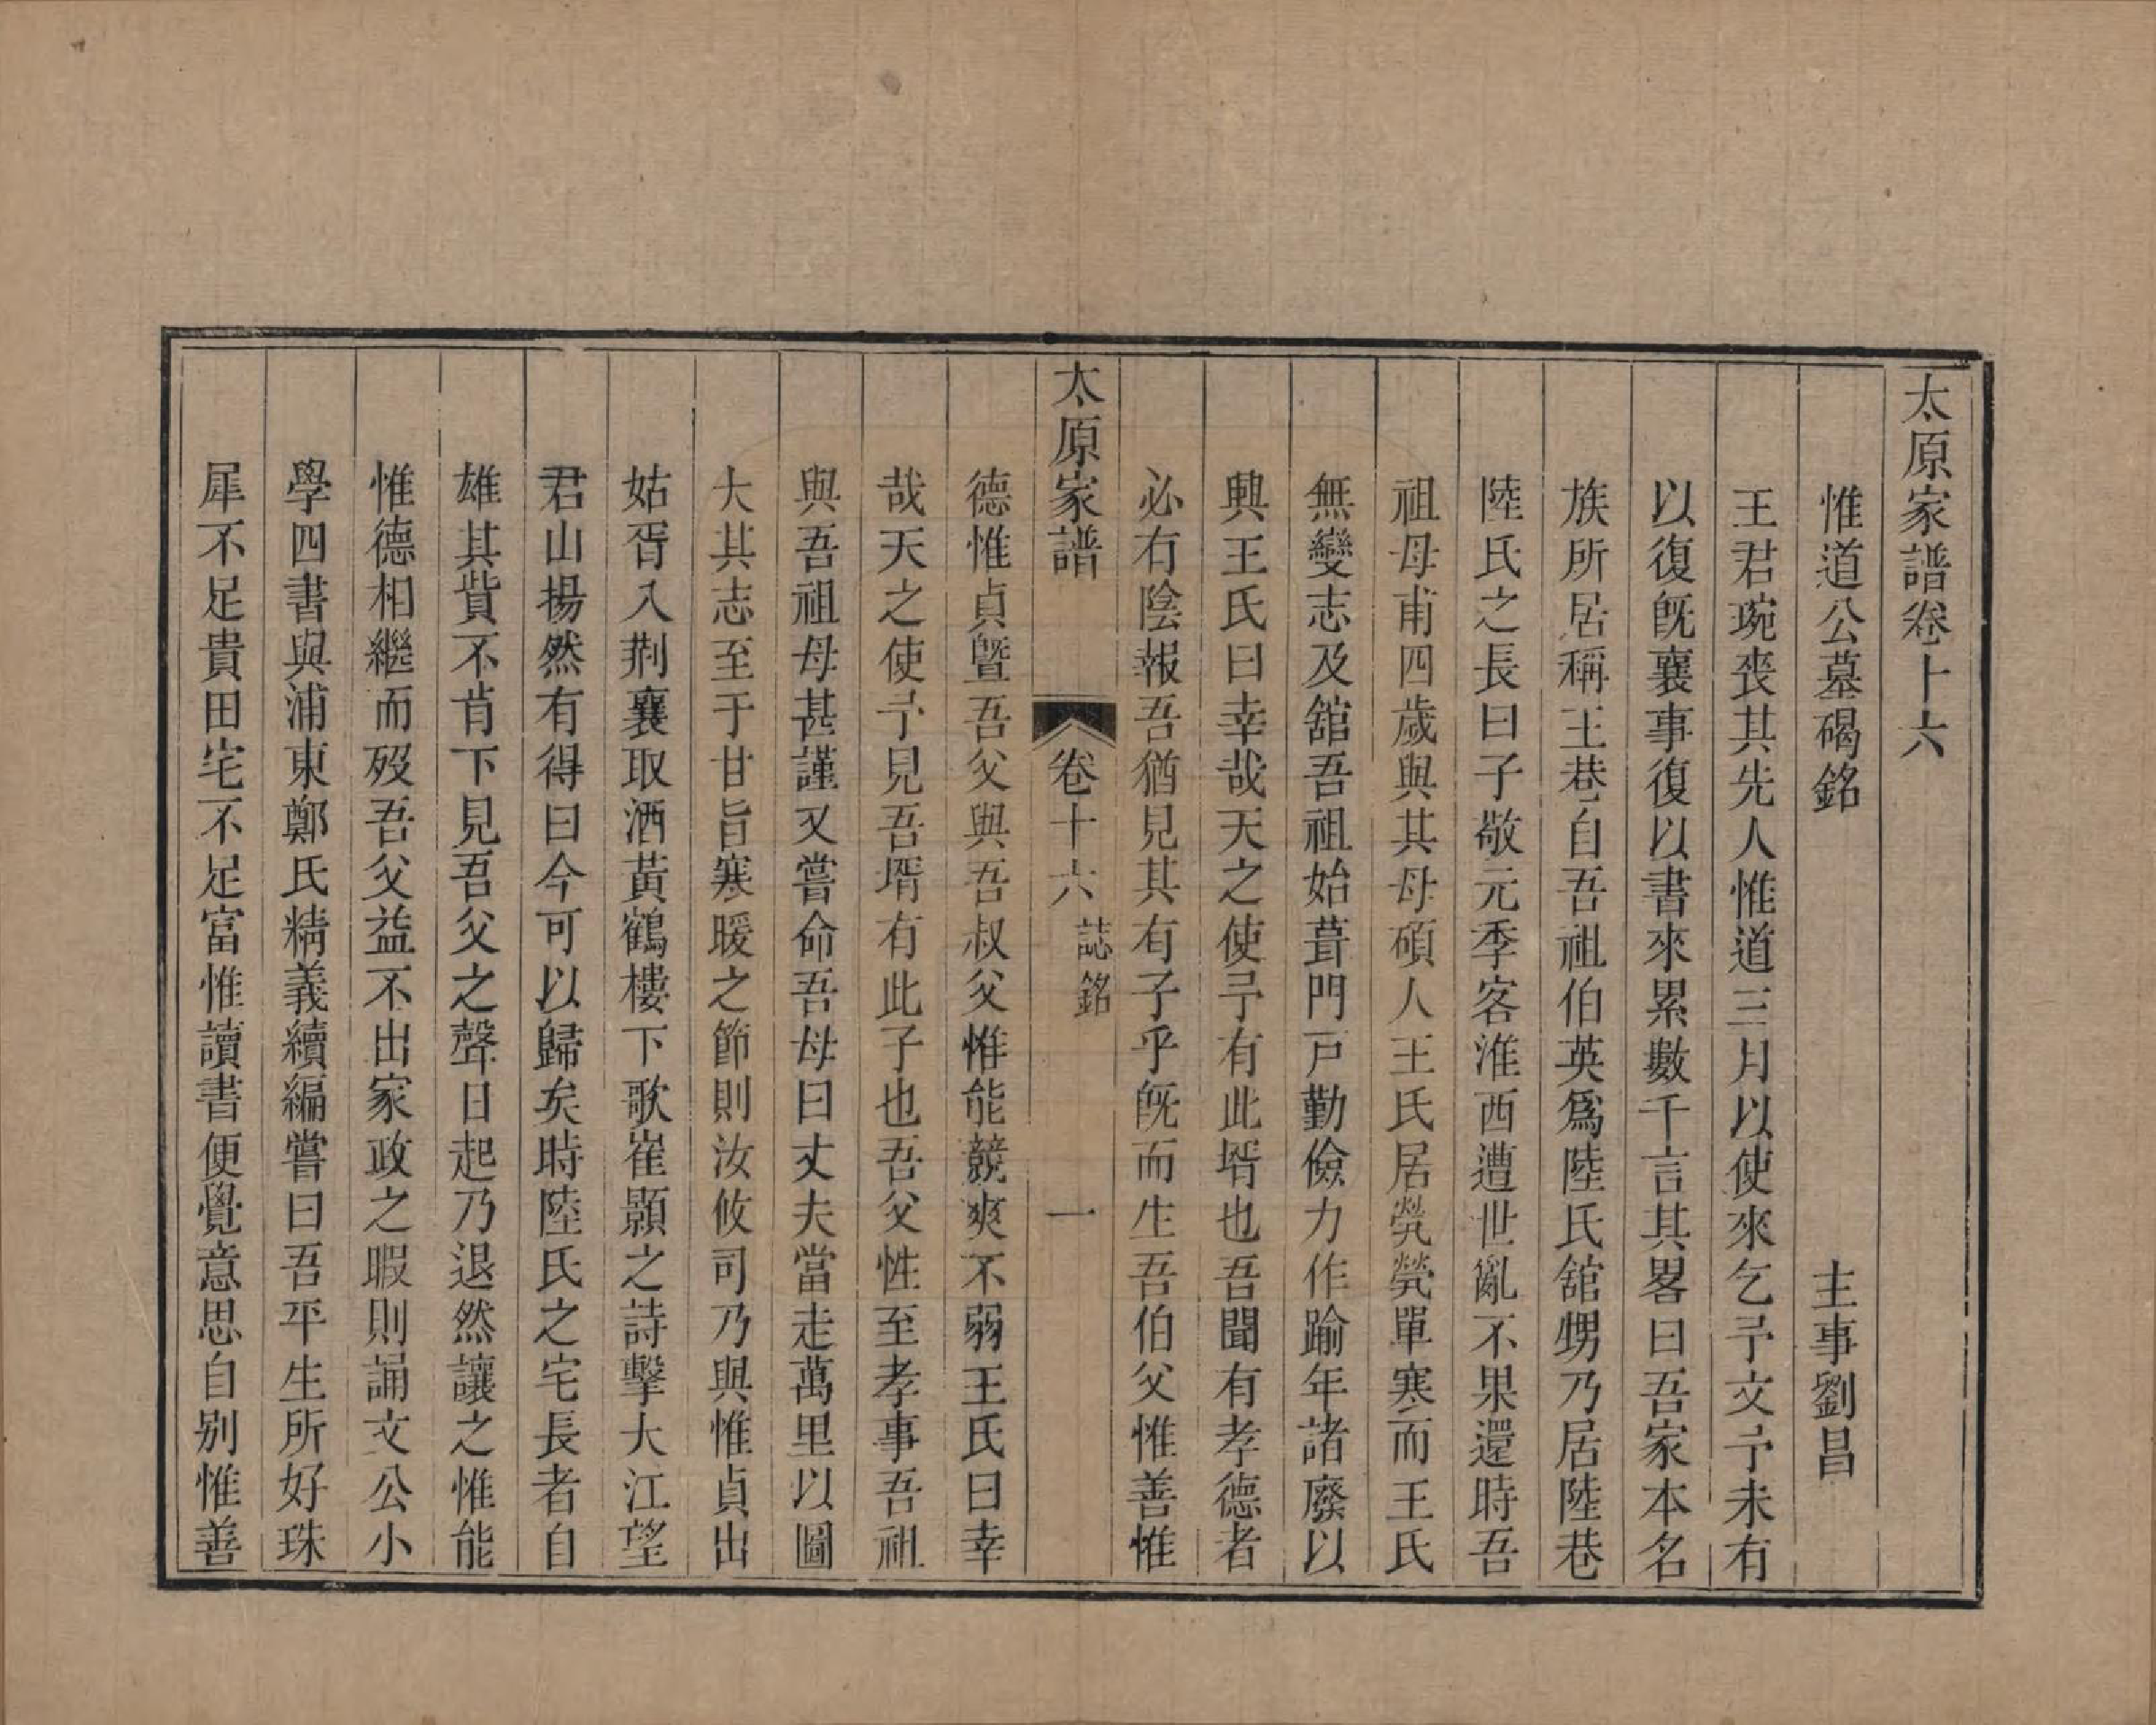 太原家譜卷十六
惟道公墓碣銘　主事劉昌
王君琬喪其先人惟道三月以使來乞予文予未有
以復旣襄事復以書來累數千言其畧曰吾家本名
族所居稱王巷自吾祖伯英爲陸氏舘甥乃居陸巷
陸氏之長曰子敬元季客淮西遭世亂不果還時吾
祖母甫四歲與其母碩人王氏居煢煢單寒而王氏
無變志及舘吾祖始葺門戸勤儉力作踰年諸廢以
興王氏曰幸哉天之使予有此壻也吾聞有孝德者
必有陰報吾猶見其有子乎旣而生吾伯父惟善惟
太原家譜　卷十六　誌銘　一
德惟貞曁吾父與吾叔父惟能競爽不弱王氏曰幸
哉天之使予見吾壻有此子也吾父性至孝事吾祖
與吾祖母甚謹又嘗命吾母曰丈夫當走萬里以圖
大其志至于甘旨寒暖之節則汝攸司乃與惟貞出
姑胥入荆襄取酒黃鶴樓下歌崔顥之詩擊大江望
君山揚然有得曰今可以歸矣時陸氏之宅長者自
雄其貲不肯下見吾父之聲日起乃退然讓之惟能
惟德相繼而歿吾父益不出家政之暇則誦文公小
學四書與浦東鄭氏精義續編嘗曰吾平生所好珠
犀不足貴田宅不足富惟讀書便覺意思自別惟善